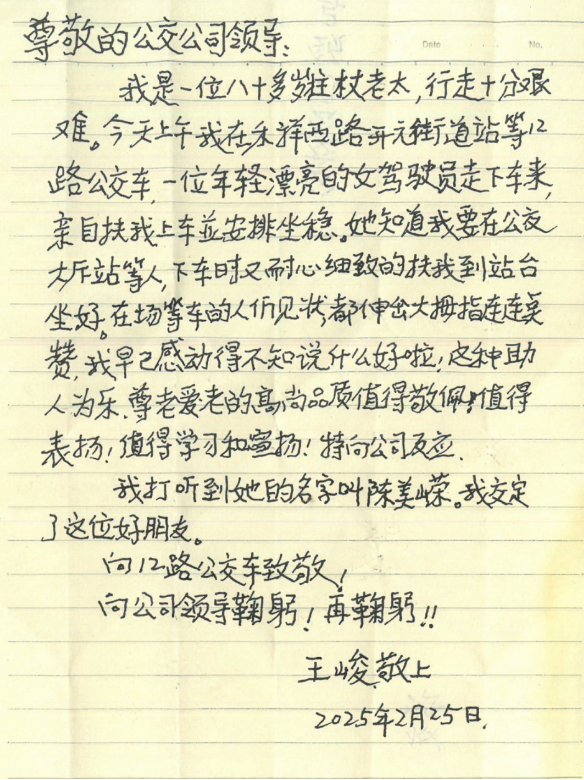 Date No.
尊敬的公交公司领导:
我是一位八十多岁拄杖老太,行走十分艰
难。今天上午我在永祥西路开元街道站等12
路公交车,一位年轻漂亮的女驾驶员走下车来,
亲自扶我上车並安排坐稳。她知道我要在公交
大厈站等人,下车时又耐心细致的扶我到站台
坐好。在场等车的人们见状,都伸出大拇指连连夸
赞,我早已感动得不知说什么好啦!这种助
人为乐.尊老爱老的高尚品质值得敬佩!值得
表扬!值得学习和宣扬!特向公司反应.
我打听到她的名字叫陈美嵘。我交定
了这位好朋友。
向12路公交车致敬!
向公司领导鞠躬!再鞠躬!!
王峻敬上
2025年2月25日.